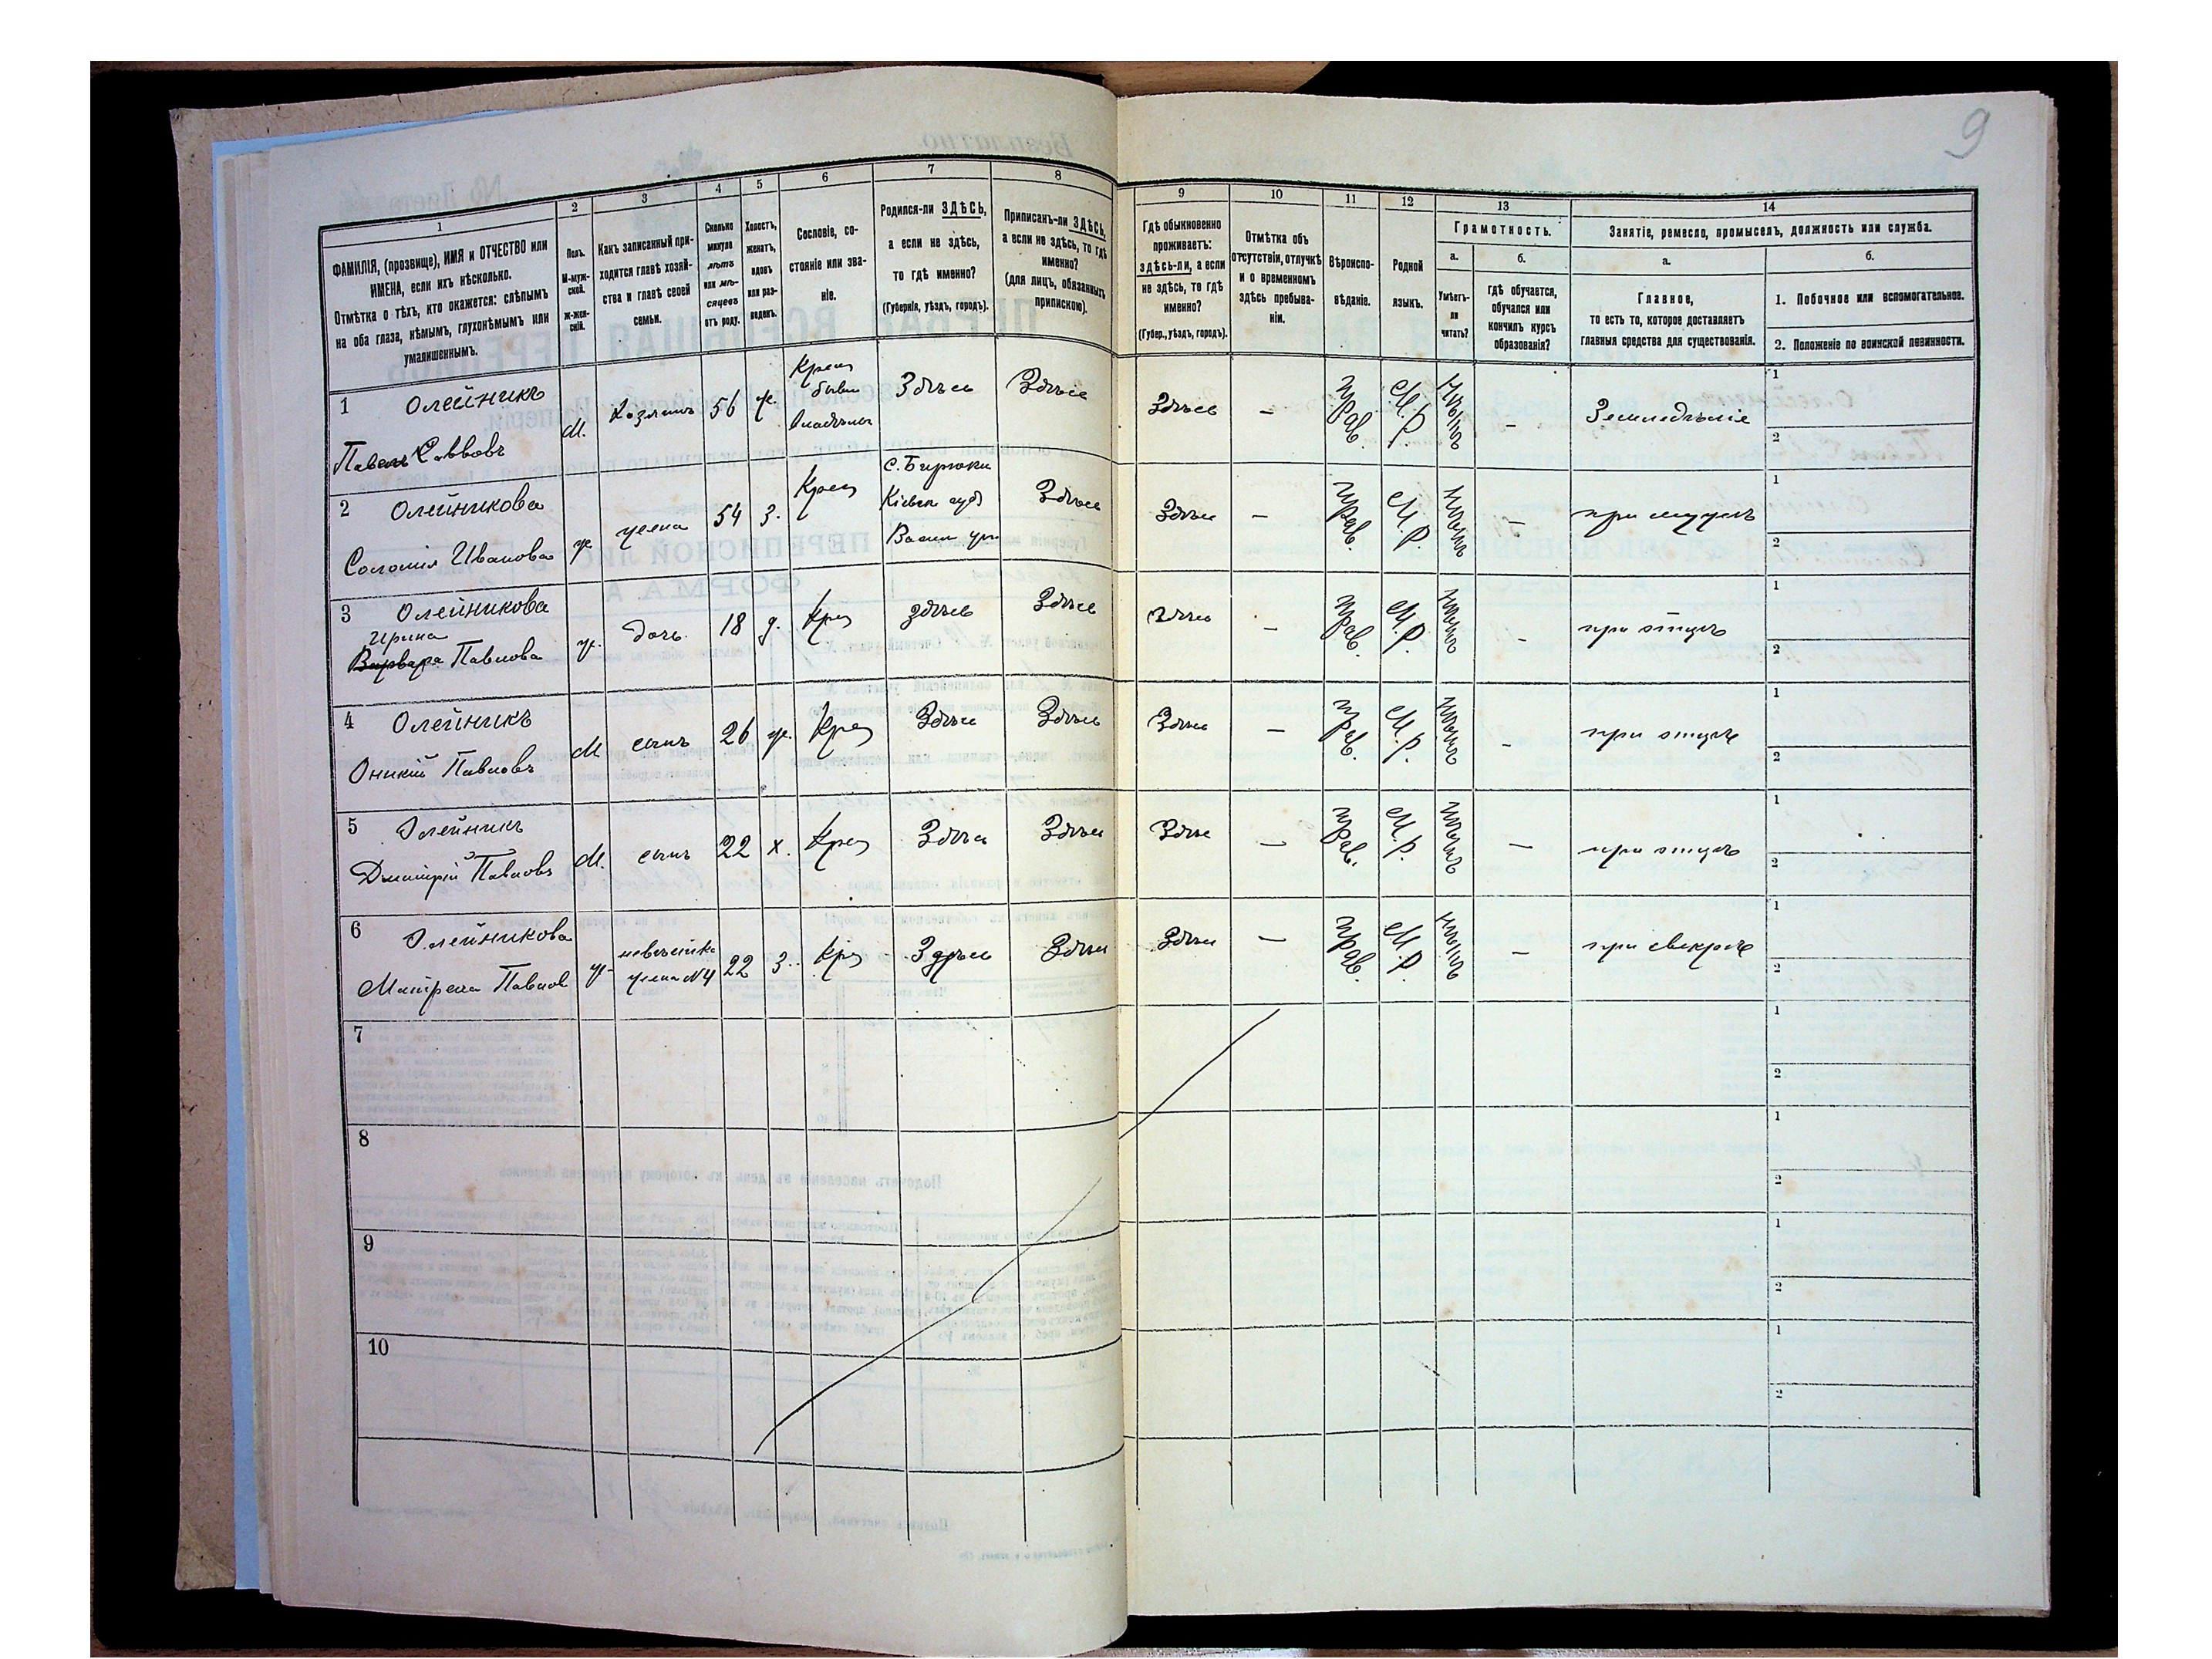 9
1
ФАМИЛІЯ, (прозвище), ИМЯ и ОТЧЕСТВО или
ИМЕНА, если ихъ нѣсколько.
Отмѣтка о тѣхъ, кто окажется: слѣпымъ
на оба глаза, нѣмымъ, глухонѣмымъ или
умалишеннымъ.
2
Полъ.
М-муж-
ской.
ж-жен-
скій.
3
Какъ записанный при-
ходится главѣ хозяй-
ства и главѣ своей
семьи.
4
Сколько
минуло
лѣтъ
или мѣ-
сяцевъ
отъ роду.
5
Холостъ,
женатъ,
вдовъ
или раз-
веденъ.
6
Сословіе, со-
стояніе или зва-
ніе.
7
Родился-ли ЗДѢСЬ,
а если не здѣсь,
то гдѣ именно?
(Губернія, уѣздъ, городъ).
8
Приписанъ-ли ЗДѢСЬ,
а если не здѣсь, то гдѣ
именно?
(для лицъ, обязанныхъ
припискою).
9
Гдѣ обыкновенно
проживаетъ:
здѣсь-ли, а если
не здѣсь, то гдѣ
именно?
(Губер., уѣздъ, городъ).
10
Отмѣтка объ
отсутствіи, отлучкѣ
и о временномъ
здѣсь пребыва-
ніи.
11
Вѣроиспо-
вѣданіе.
12
Родной
языкъ.
13
Грамотность.
а.
Умѣетъ-
ли
читать?
б.
гдѣ обучается,
обучался или
кончилъ курсъ
образованія?
14
Занятіе, ремесло, промыселъ, должность или служба.
а.
Главное,
то есть то, которое доставляетъ
главныя средства для существованія.
б.
1. Побочное или вспомогательное.
2. Положеніе по воинской повинности.
1 Олейникъ
Павелъ Саввовъ
М. Хозяинъ 56 ж. Крест бывш Здѣсь Здѣсь Здѣсь — Прав. М.Р. — Земледѣліе
1
2
2 Олейникова
Соломія Иванова
ж жена 54 З. Крест
С. Бирюки
Кіевск губ
Васил уѣз
Здѣсь Здѣсь — прав. М.Р. — при мужѣ
1
2
3 Олейникова
Ирина
Варвара Павлова
ж. дочь 18 д. Крес здѣсь Здѣсь Здѣсь — прав. М.Р. — при отцѣ
1
2
4 Олейникъ
Оникій Павловъ
М сынъ 26 ж. Крес Здѣсь Здѣсь Здѣсь — прав. М.Р. — при отцѣ
1
2
5 Олейникъ
Дмитрій Павловъ
М. сынъ 22 х. Крес Здѣсь Здѣсь Здѣсь — прав. М.Р. — при отцѣ
1
2
6 Олейникова
Матрена Павлов
ж невѣстка
жена N4
22 З. Крес Здѣсь Здѣсь Здѣсь — прав. М.Р. — при свекрѣ
1
2
7
1
2
8
1
2
9
1
2
10
1
2